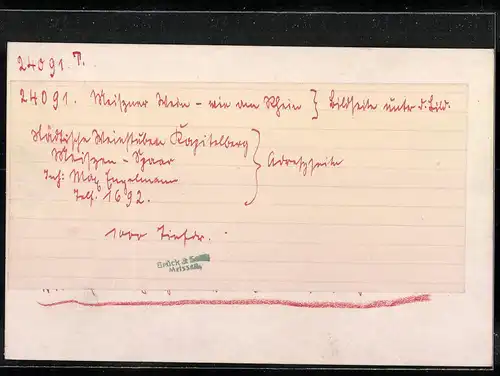 24091 T.
24091. Meißner Wein - wie am Rhein } Bildseite unter d. Bild.
Städtische Weinstuben Kapitelberg
Meißen - Spaar
Inh: Max Engelmann
Telf. 1692.
} Adreßseite
1000 Tiefdr.
Brück & Sohn
Meissen